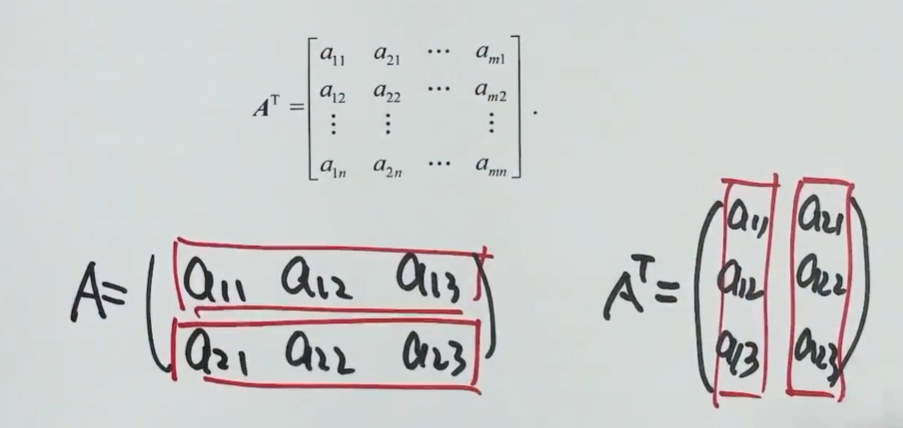 Aᵀ = [ a₁₁ a₂₁ ⋯ aₘ₁
a₁₂ a₂₂ ⋯ aₘ₂
⋮ ⋮ ⋮
a₁ₙ a₂ₙ ⋯ aₘₙ ] .
A = ( a₁₁ a₁₂ a₁₃
a₂₁ a₂₂ a₂₃ )
Aᵀ = ( a₁₁ a₂₁
a₁₂ a₂₂
a₁₃ a₂₃ )